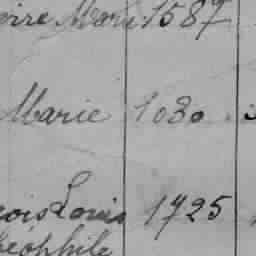 erre Marie 1587
Marie 1030
çois Louis 1725
héophile